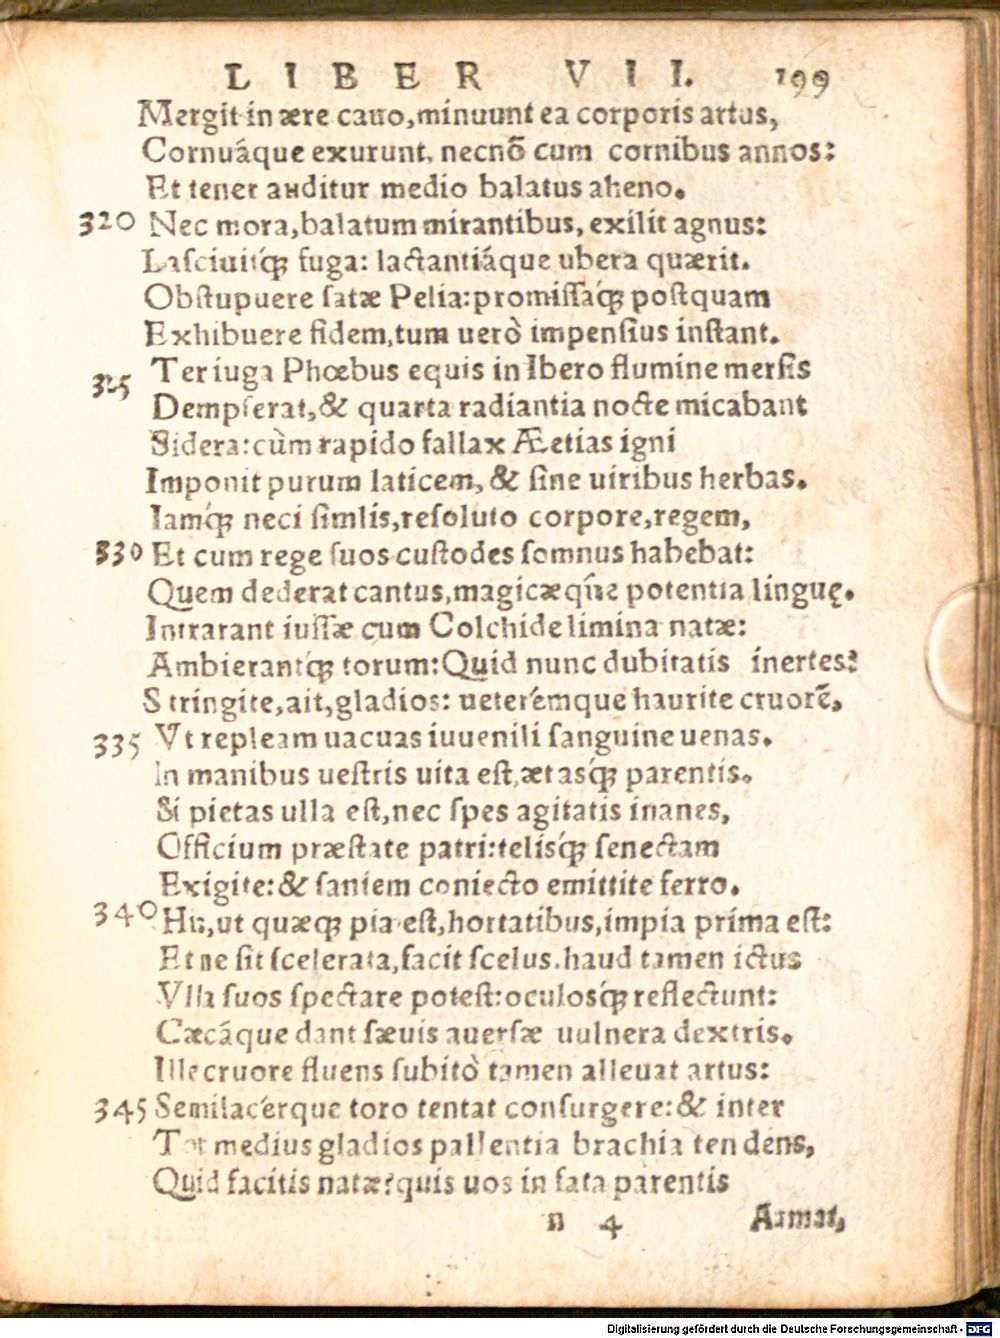 LIBER VII. 199
Mergit in ære cauo, minuunt ea corporis artus,
Cornuáque exurunt, necnõ cum cornibus annos:
Et tener auditur medio balatus aheno.
320 Nec mora, balatum mirantibus, exilit agnus:
Lasciuitq́ꝫ fuga: lactantiáque ubera quærit.
Obstupuere satæ Pelia: promissaq́ꝫ postquam
Exhibuere fidem, tum uerò impensius instant.
Ter iuga Phœbus equis in Ibero flumine mersis
325 Dempserat, & quarta radiantia nocte micabant
Sidera: cùm rapido fallax Æetias igni
Imponit purum laticem, & sine uiribus herbas.
Iamq́ꝫ neci simlis, resoluto corpore, regem,
330 Et cum rege suos custodes somnus habebat:
Quem dederat cantus, magicæq́ue potentia linguę.
Intrarant iussæ cum Colchide limina natæ:
Ambierantq́ꝫ torum: Quid nunc dubitatis inertes?
Stringite, ait, gladios: ueterémque haurite cruorẽ,
335 Vt repleam uacuas iuuenili sanguine uenas.
In manibus uestris uita est, ætasq́ꝫ parentis.
Si pietas ulla est, nec spes agitatis inanes,
Officium præstate patri: telisq́ꝫ senectam
Exigite: & saniem coniecto emittite ferro.
340 His, ut quæqꝫ pia est, hortatibus, impia prima est:
Et ne sit scelerata, facit scelus. haud tamen ictus
Vlla suos spectare potest: oculosq́ꝫ reflectunt:
Cæcáque dant sæuis auersæ uulnera dextris.
Ille cruore fluens subitò tamen alleuat artus:
345 Semilacérque toro tentat consurgere: & inter
Tot medius gladios pallentia brachia tendens,
Quid facitis natæ? quis uos in fata parentis
n 4 Armat,
Digitalisierung gefördert durch die Deutsche Forschungsgemeinschaft - DFG